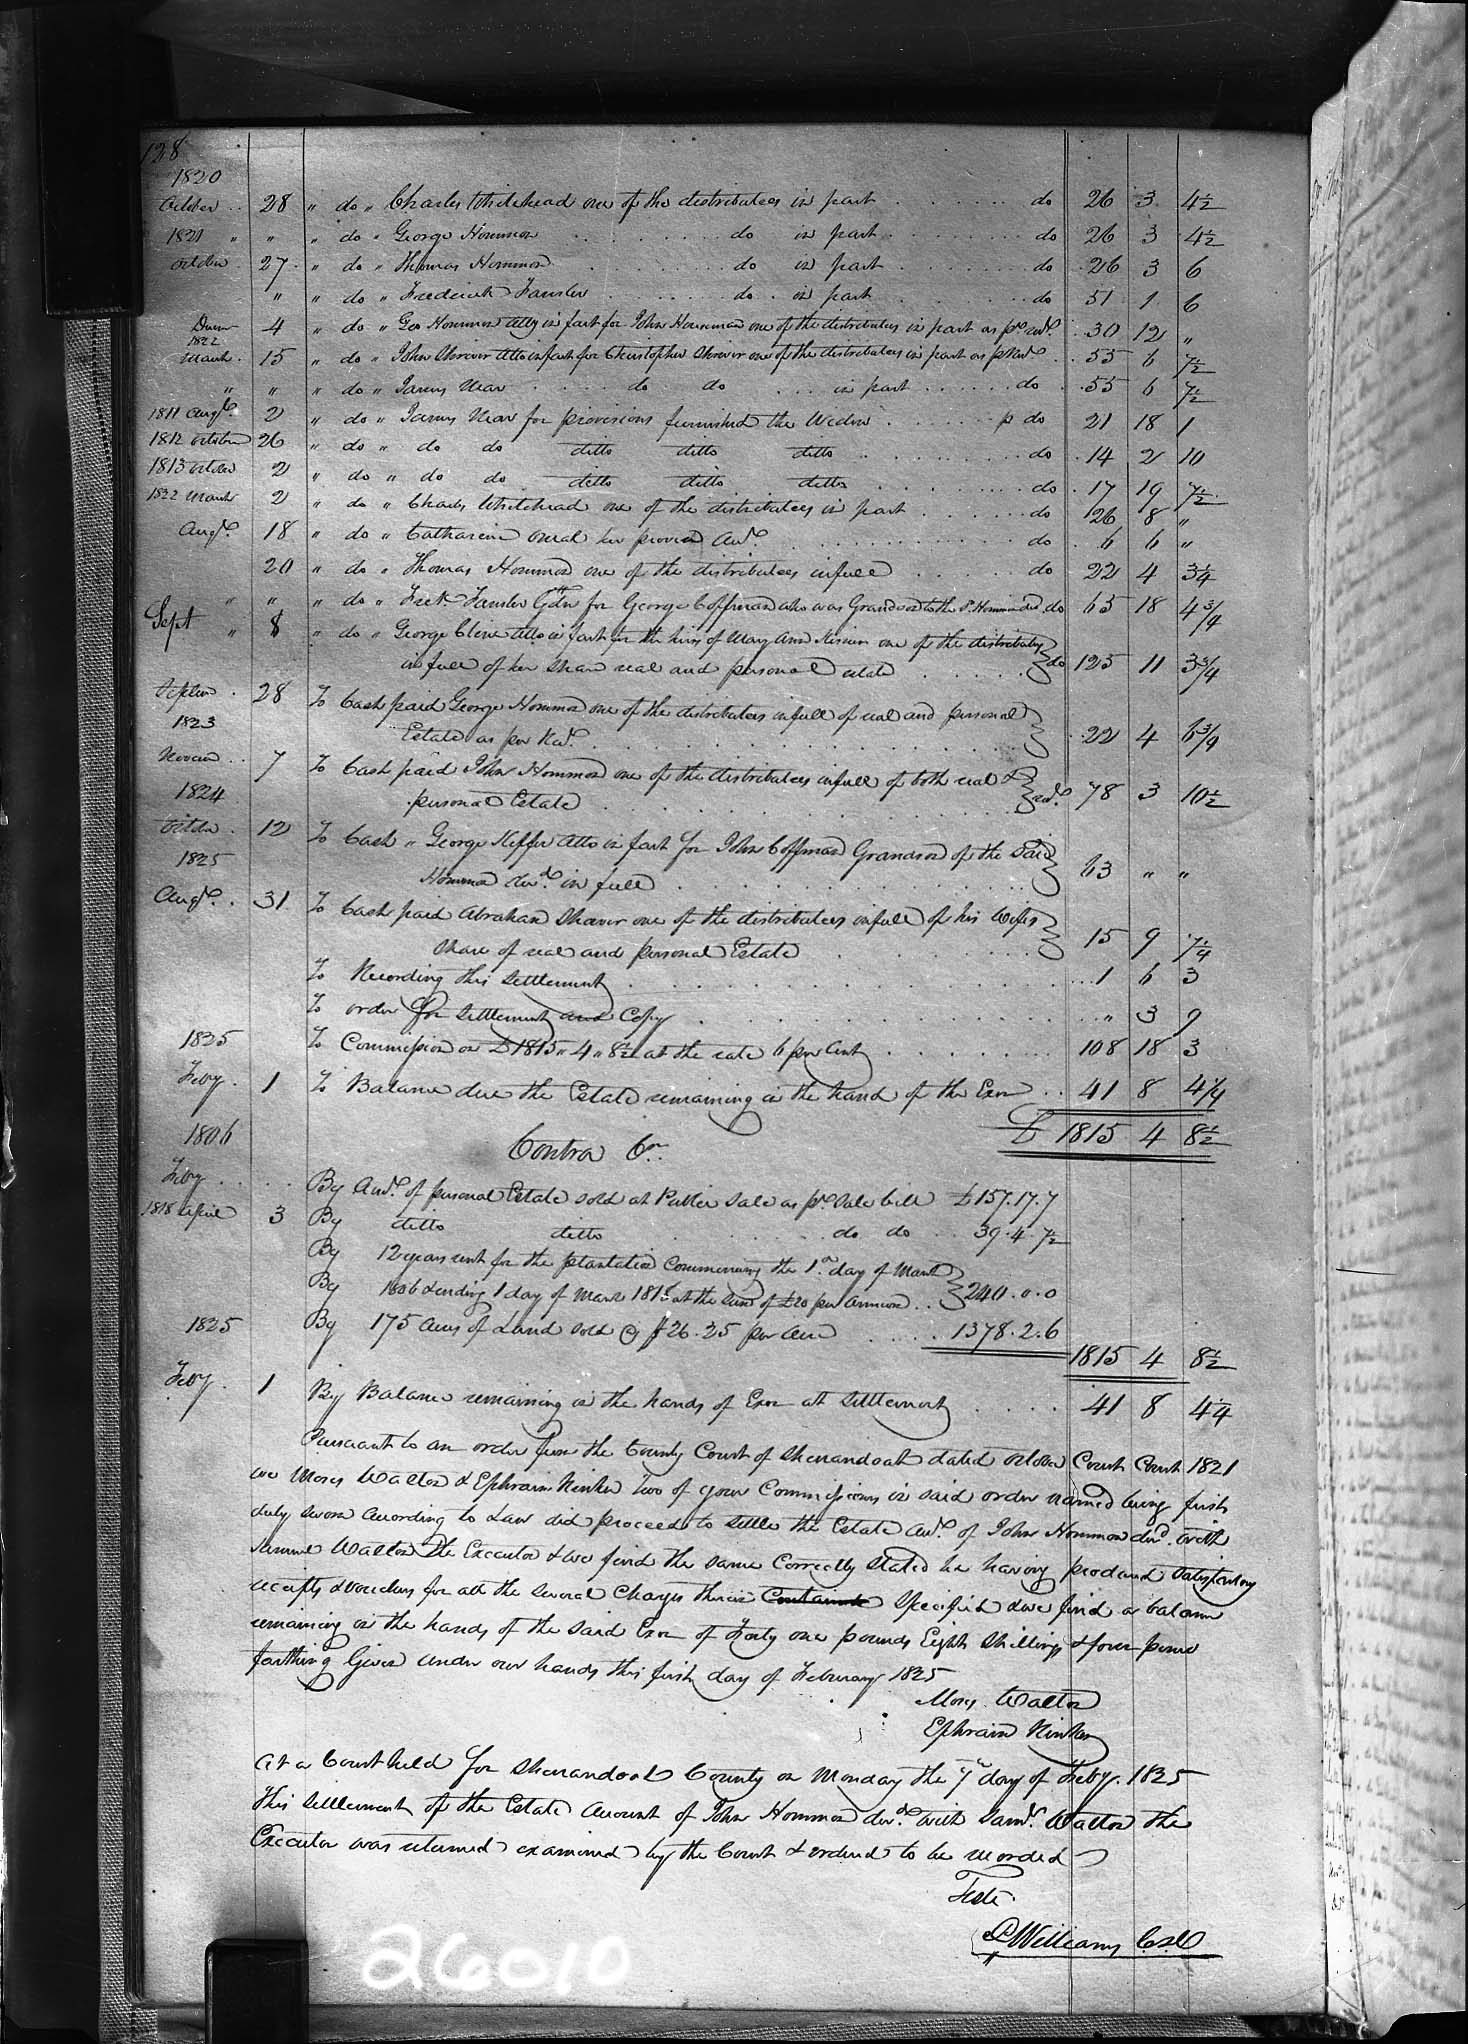 128
1820
October 28 " do " Charles Whitehead one of the distributees in part do 26 3 4½
1821 " " " do " George Hommon do in part do 26 3 4½
October 27 " do " Thomas Hommon do in part do 26 3 6
" " do " Frederick Fansler do in part do 51 1 6
4 " do " Geo Hommon atty in fact for John one of the distributees in part as pr. 30 12 "
1822
March 15 " do " John Shaver atto in fact for Christopher Shaver one of the distributees in part as p 55 6 7½
" " " do " James Near do do in part do 55 6 7½
1811 Augt. 2 " do " James Near for provisions furnished the Widow p do 21 18 1
1812 October 26 " do " do do ditto ditto ditto do 14 2 10
1813 October 2 " do " do do ditto ditto ditto do 17 19 7½
1822 March 2 " do " Charles Whitehead one of the distributees in part do 26 8 "
Augt. 18 " do " Catharine her proven do 6 6 "
20 " do " Thomas Hommon one of the distributees in full do 22 4 3¼
" " " do " Fansler Gdn for George Coffman who was Grandson to the decd do 65 18 4¾
Sept " 8 " do " George Cline atto in fact for the heirs of Mary Ann one of the distributees
in full of her share real and personal estate do 125 11 3¾
28 To Cash paid George Hommon one of the distributees in full of real and personal
1823
Estate as per 22 4 6¾
7 To Cash paid John Hommon one of the distributees in full of both real &
1824
personal Estate 78 3 10½
12 To Cash " George atto in fact for John Coffman Grandson of the said
1825
Hommon decd. in full 63 " "
Augt. 31 To Cash paid Abraham Shaver one of the distributees in full of his Wifes
share of real and personal Estate 15 9 7¼
To Recording this Settlement 1 6 3
To order for settlement and Copy " 3 9
1825 To Commission on £1815 " 4 " 8½ at the rate 6 per Cent 108 18 3
Feby. 1 To Balance due the Estate remaining in the hand of the Exor 41 8 4¼
£ 1815 4 8½
1806
Contra Cr.
Feby By Amt. of personal Estate sold at Public Sale as pr. Sale bill £157.17.7
1818 April 3 By ditto ditto do do 39.4.7½
By 12 years rent for the plantation Commencing the 1st day of March
By 1806 & ending 1 day of March 1818 at the sum of £20 per Annum 240.0.0
1825 By 175 acres of Land sold @ $26.25 per Acre 1378.2.6
1815 4 8½
Feby. 1 By Balance remaining in the hands of Exor at settlement 41 8 4¼
Pursuant to an order from the County Court of Shenandoah dated October Court Court 1821
we Moses Walton & Ephraim Rinker two of your Commissioners in said order named being first
duly sworn according to Law did proceed to settle the Estate Act. of John Hommon decd. with
Samuel Walton the Executor & we find the same Correctly stated he having produced satisfactory
receipts & vouchers for all the several Charges therein Specified & we find a balance
remaining in the hands of the said Exor of Forty one pounds Eight Shillings & four pence
farthing Given under our hands this first day of February 1825
Moses Walton
Ephraim Rinker
At a Court held for Shenandoah County on Monday the 7th day of Feby. 1825
This settlement of the Estate Account of John Hommon decd. with Saml. Walton the
Executor was returned examined by the Court & ordered to be recorded
Teste
P Williams
26010